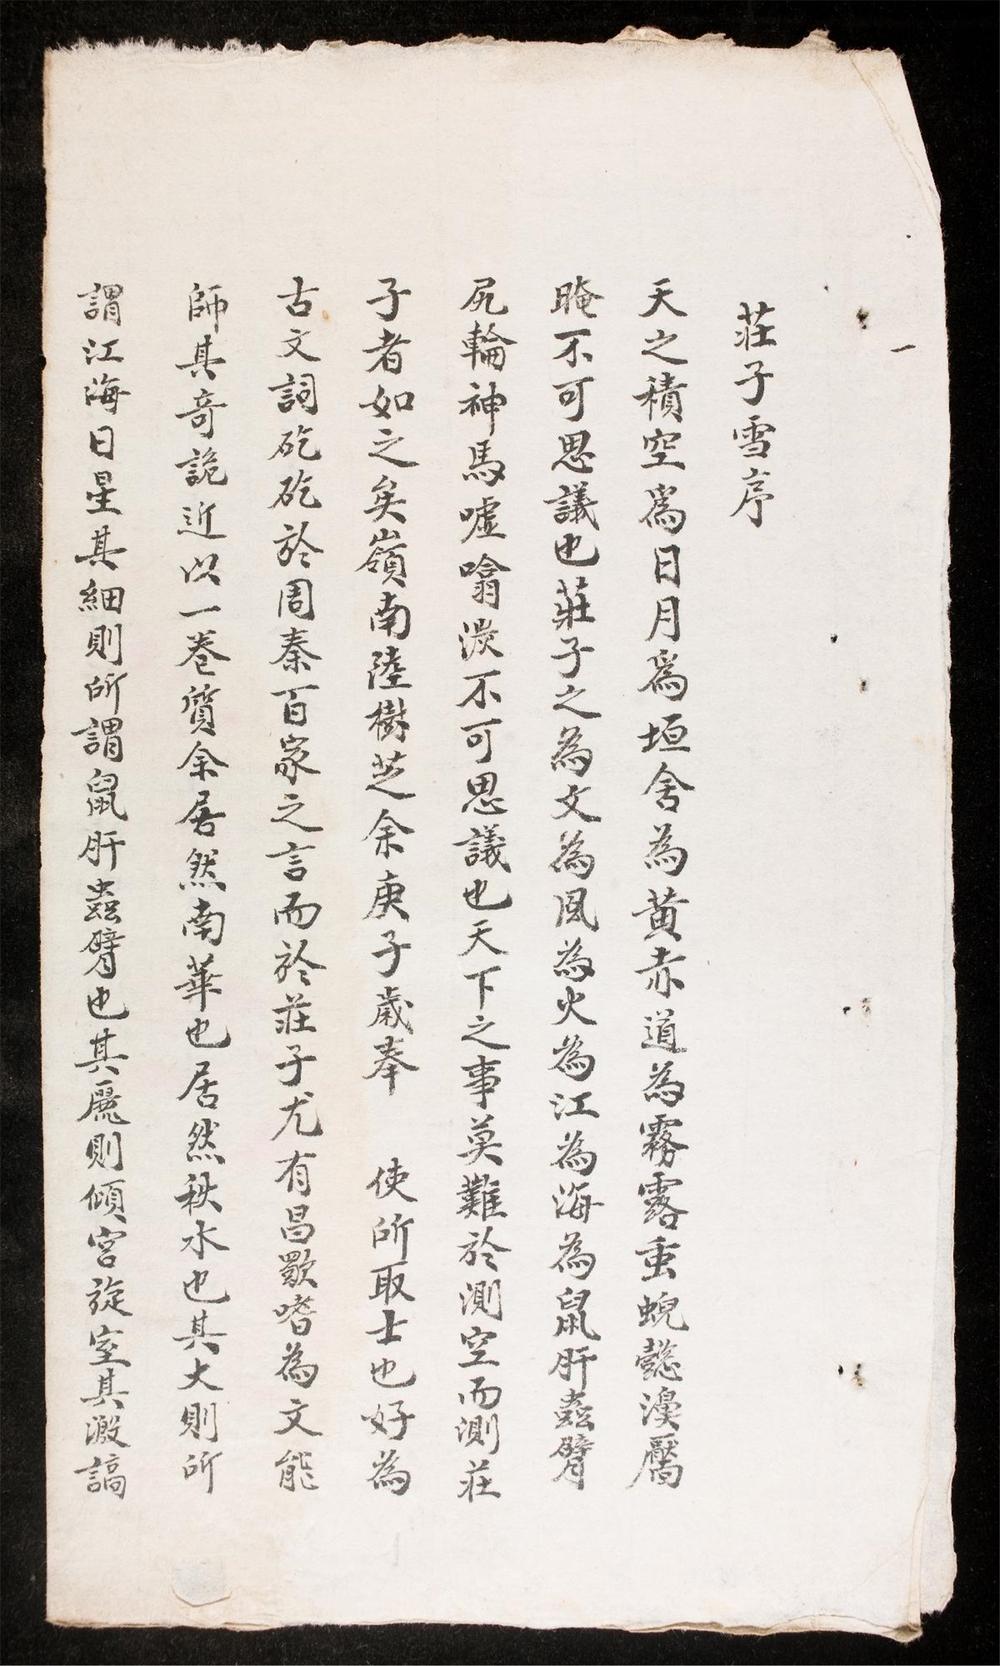 一
莊子雪序
天之積空爲日月爲垣舍為黃赤道為霧露虫蜺懿濩靥
晻不可思議也莊子之為文為風為火為江為海為鼠肝蟲臂
尻輪神馬噓噏淡不可思議也天下之事莫難於測空而測莊
子者如之矣嶺南陸樹芝余庚子歲奉　使所取士也好為
古文詞矻矻於周秦百家之言而於莊子尤有昌歜嗜為文能
師其奇詭近以一卷質余居然南華也居然秋水也其大則所
謂江海日星其細則所謂鼠肝蟲臂也其厲則傾宮旋室其激謞